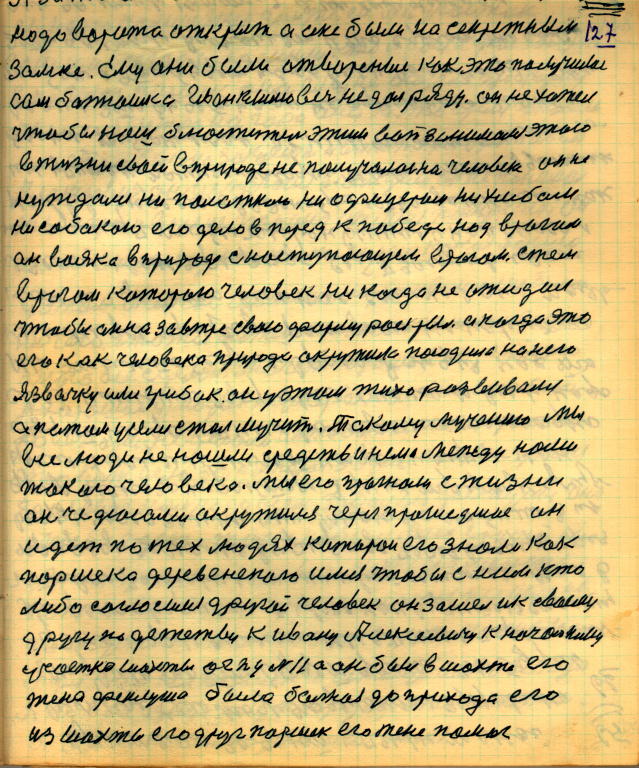 127
надо ворота открыт а они были на секретным
замке. Ему они были отворение как, это получилос
сам батюшка Иван климович не дал ряду. он не хотел
чтобы наш блюститель этим вот занимался этого
в жизни своей в природе не получалос на человека он не
нуждалс ни палаткою ни офицером ни хлебом
ни собакою его дело в перед к победе над врагам
он вояка в природе с наступающем врагом. с тем
врагом которого человек ни когда не ожидал
чтобы он на завтре свою форму раскрыл. а когда это
его как человека природа окружила посадила на него
язвачку или грибок. он у этом тихо развивался
а потом узели стал мучит. Такому мучению мы
все люди не нашли средств и нема между нами
такого человека. мы его прогнали с жизни
он чертами окружился через прошедшие он
идет по тех людях которои его знали как
паршека деревенского имя чтобы с ним кто
либо согласился другой человек он зашел и к своему
другу по детству к ивану Алексеевичу к начальнику
участка шахты он у №11 а он был в шахте его
жена феклуша была больная до прихода его
из шахты его друг паршек его жене помог